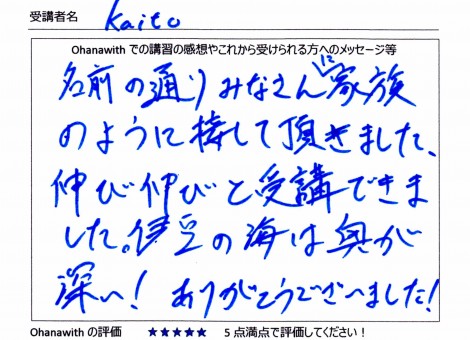 受講者名 Kaito
Ohanawith での講習の感想やこれから受けられる方へのメッセージ等
名前の通りみなさんに家族
のように接して頂きました、
伸び伸びと受講できま
した。伊豆の海は奥が
深い！ ありがとうございました！
Ohanawith の評価 ★★★★★ 5点満点で評価してください！